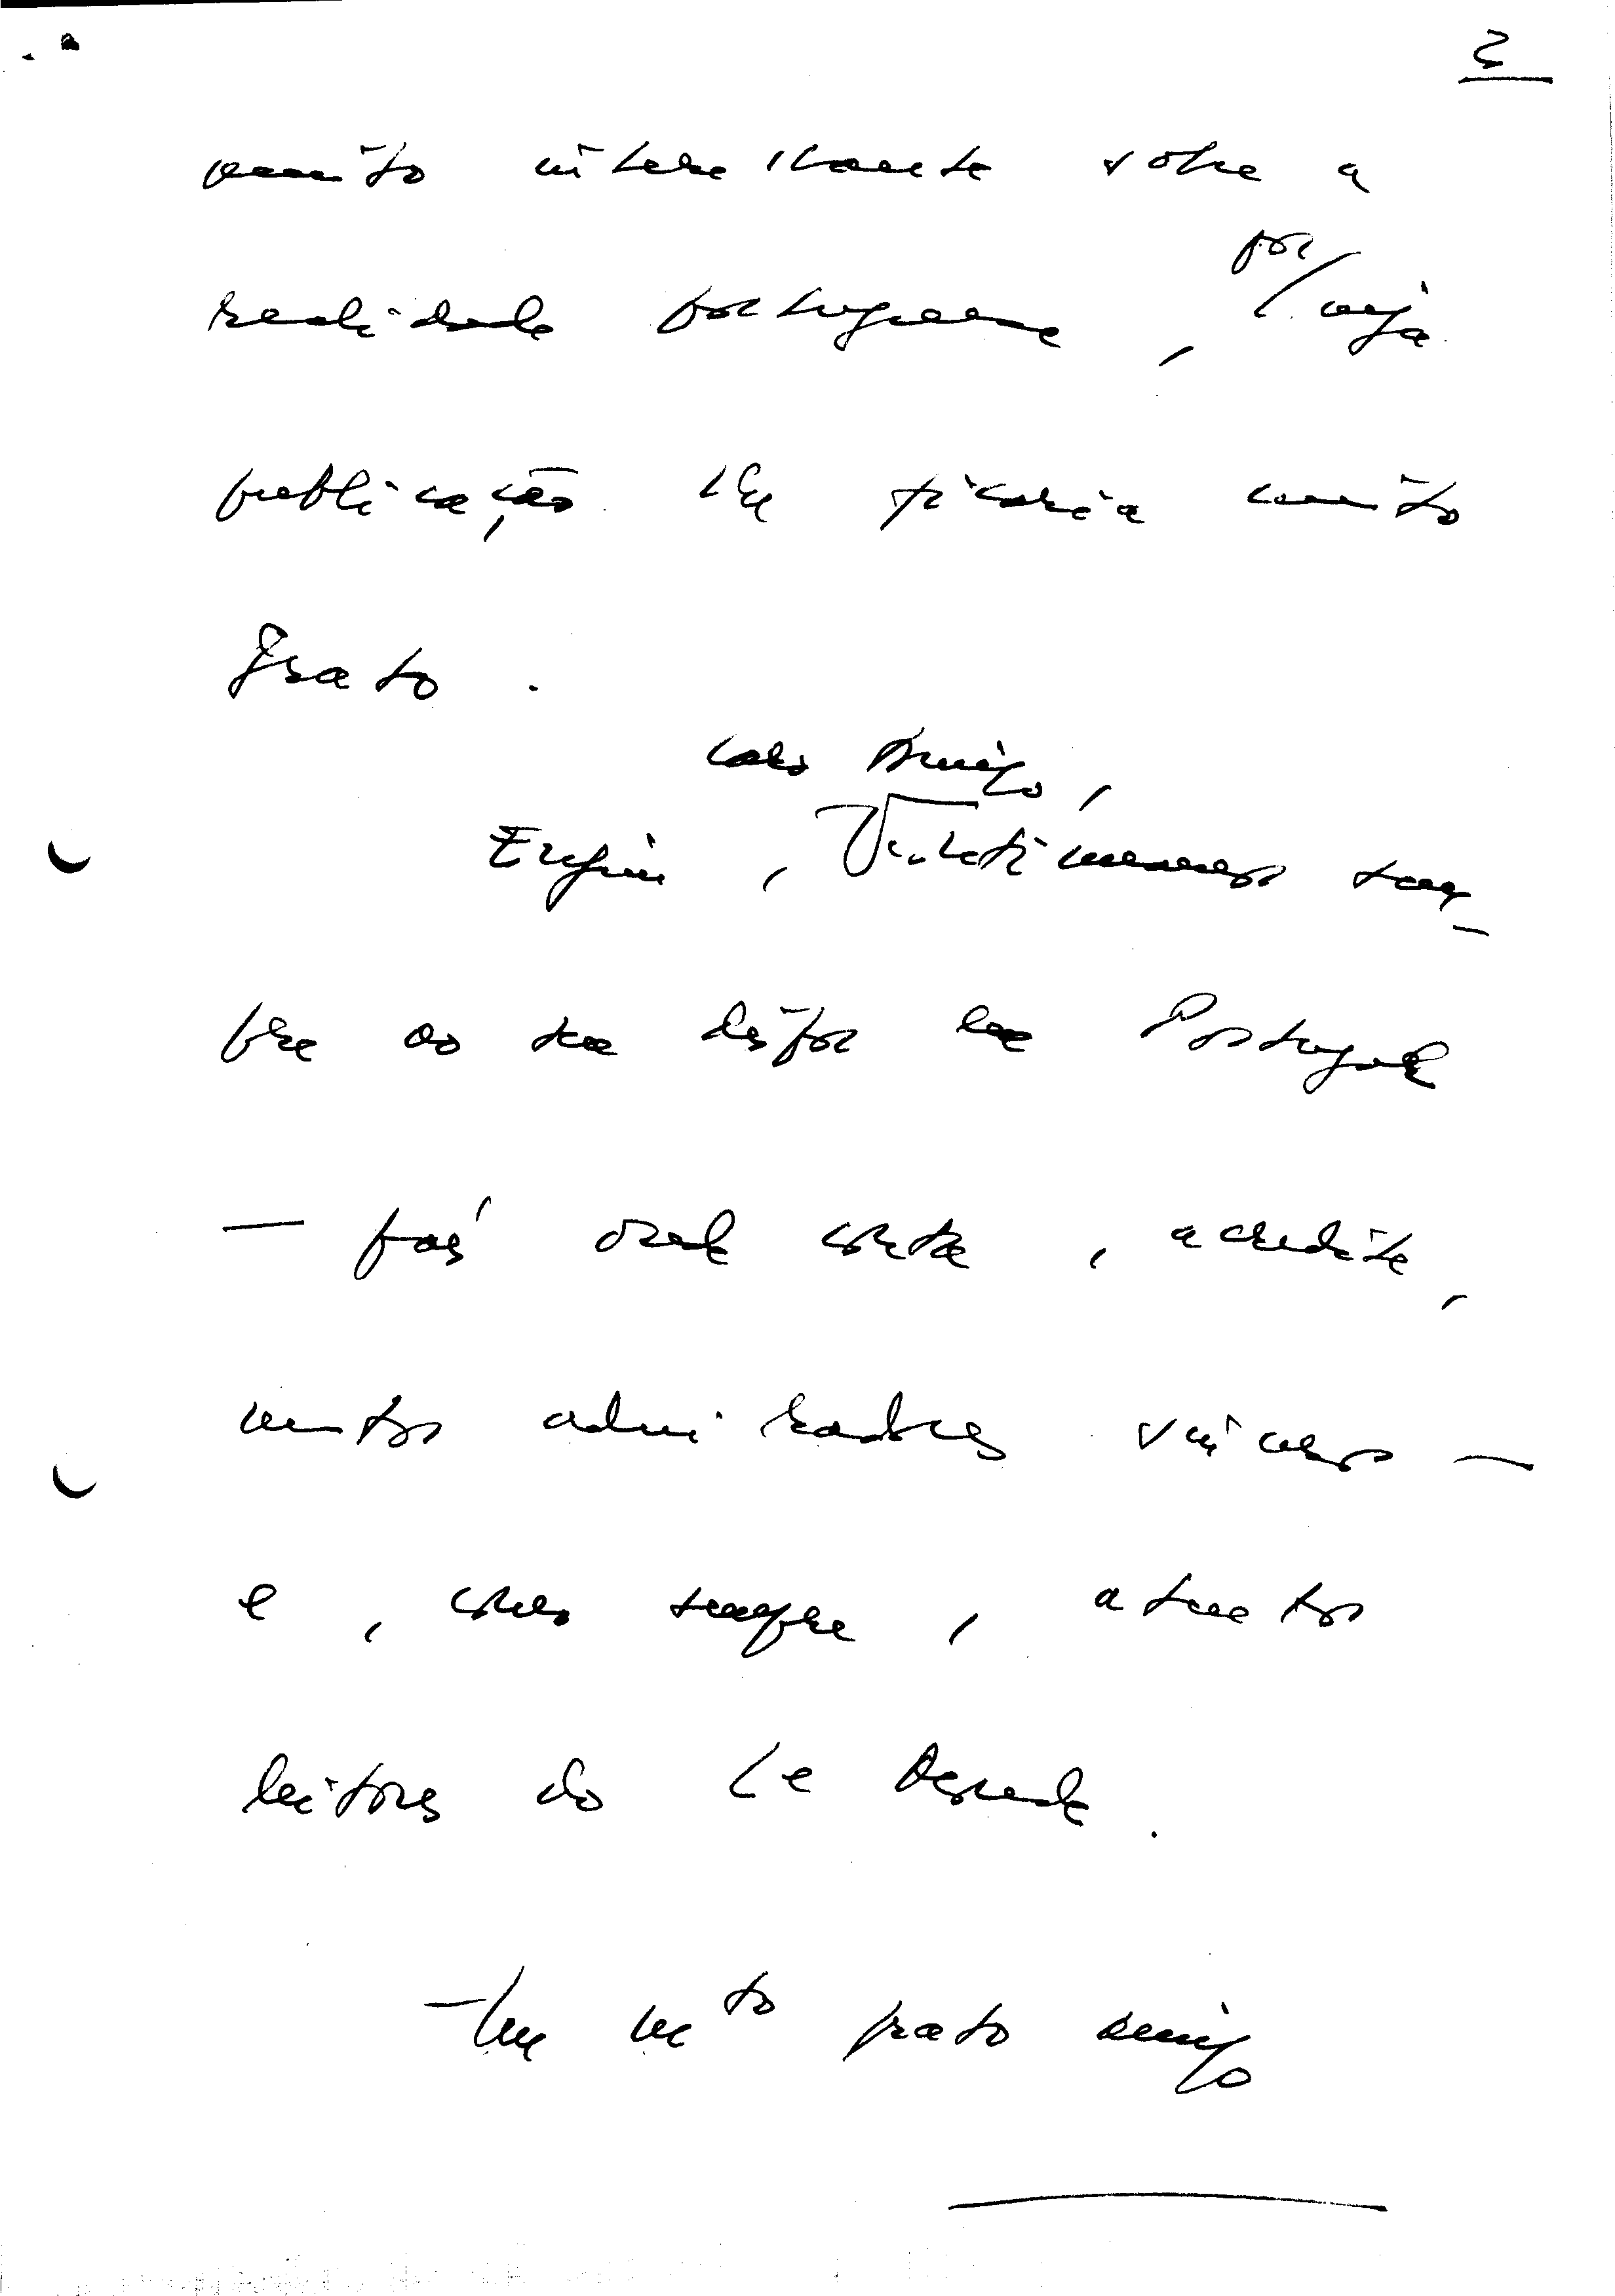 2
muito interessante sobre a
realidade portuguesa, por/cuja
publicação lhe ficaria muito
grato.
Caro Amigo,
Enfim, sem-
pre ao seu dispor em Portugal
— onde conta, acredite,
muitos admiradores sinceros —
e, como sempre, atentos
leitores do Le Monde.
Seu mto grato amigo